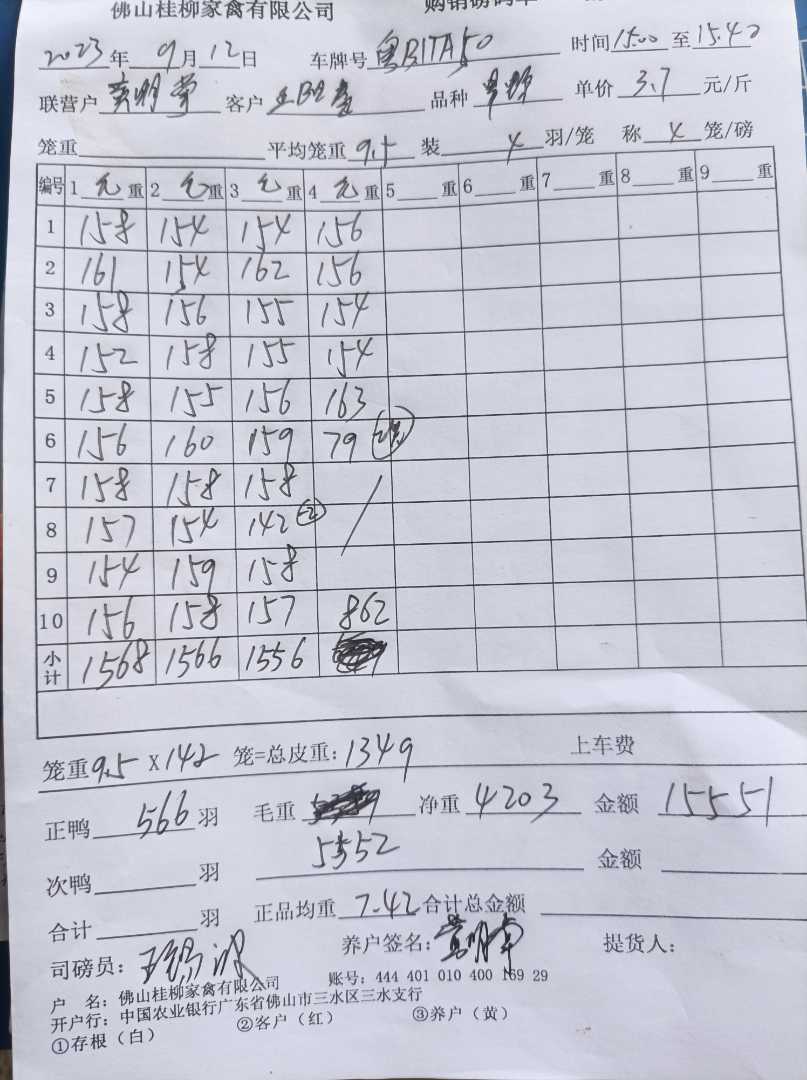 佛山桂柳家禽有限公司 购销磅码单
2023年9月12日 车牌号粤B1TA50 时间15:00至15:42
联营户 客户 品种 单价3.7元/斤
笼重 平均笼重9.5 装4羽/笼 称4笼/磅
编号 1毛重 2毛重 3毛重 4毛重 5重 6重 7重 8重 9重
1 158 154 154 156
2 161 154 162 156
3 158 156 155 154
4 152 158 155 154
5 158 155 156 163
6 156 160 159 79
7 158 158 158
8 157 154 142
9 154 159 158
10 156 158 157 862
小计 1568 1566 1556
笼重9.5X142笼=总皮重:1349 上车费
正鸭566羽 毛重 净重4203 金额15551
5552
次鸭羽 金额
合计羽 正品均重7.42合计总金额
司磅员: 养户签名: 提货人:
户 名:佛山桂柳家禽有限公司 账号:444 401 010 400 169 29
开户行:中国农业银行广东省佛山市三水区三水支行
①存根(白) ②客户(红) ③养户(黄)